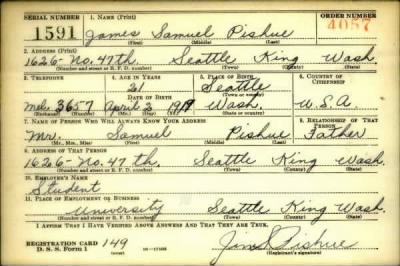 SERIAL NUMBER 1. NAME (Print) ORDER NUMBER
1591 James Samuel Pishue 4057
(First) (Middle) (Last)
2. ADDRESS (Print)
1626-No. 47th. Seattle King Wash.
(Number and street or R. F. D. number) (Town) (County) (State)
3. TELEPHONE 4. AGE IN YEARS 5. PLACE OF BIRTH 6. COUNTRY OF CITIZENSHIP
21 Seattle
DATE OF BIRTH (Town or county)
Mel. 3657 April 2 1919 Wash. U.S.A.
(Exchange) (Number) (Mo.) (Day) (Yr.) (State or country)
7. NAME OF PERSON WHO WILL ALWAYS KNOW YOUR ADDRESS 8. RELATIONSHIP OF THAT PERSON
Mr. Samuel Pishue Father
(Mr., Mrs., Miss) (First) (Middle) (Last)
9. ADDRESS OF THAT PERSON
1626-No. 47 th. Seattle King Wash.
(Number and street or R. F. D. number) (Town) (County) (State)
10. EMPLOYER'S NAME
Student
11. PLACE OF EMPLOYMENT OR BUSINESS
University Seattle King Wash.
(Number and street or R. F. D. number) (Town) (County) (State)
I AFFIRM THAT I HAVE VERIFIED ABOVE ANSWERS AND THAT THEY ARE TRUE.
REGISTRATION CARD 149
D. S. S. Form 1 Jim S. Pishue
(Registrant's signature)